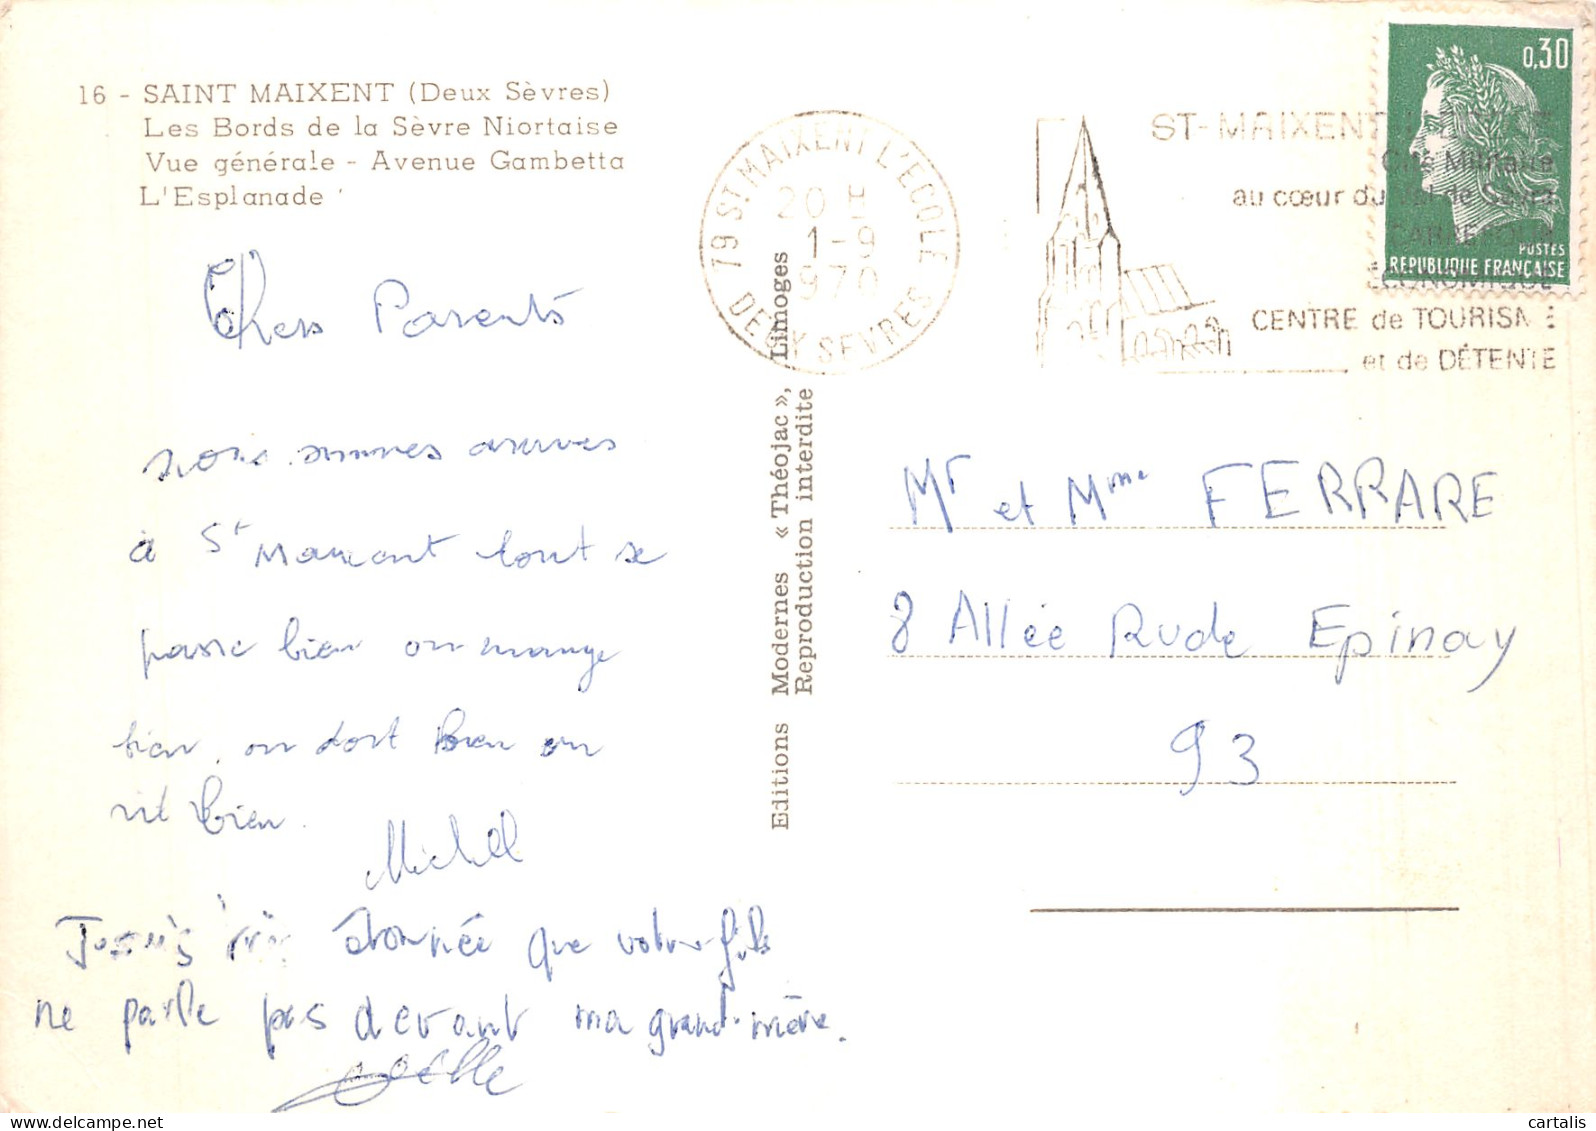 16 - SAINT MAIXENT (Deux Sèvres)
Les Bords de la Sèvre Niortaise
Vue générale - Avenue Gambetta
L'Esplanade
Chers Parents
nous sommes arrivés
à St Maixent tout se
passe bien on mange
bien, on dort bien on
vit bien.
Michel
Je suis étonnée que votre fils
ne parle pas devant ma grand-mère.
Joëlle
Editions Modernes « Théojac », Limoges
Reproduction interdite
79 ST MAIXENT L'ECOLE
20 H
1-9
970
DEUX SEVRES
ST-MAIXENT
Cité Militaire
au cœur du Val de Sèvre
CARREFOUR
ECONOMIQUE
CENTRE de TOURISME
et de DÉTENTE
0,30
POSTES
REPUBLIQUE FRANÇAISE
Mr et Mme FERRARE
8 Allée Rude Epinay
93
delcampe.net
cartalis